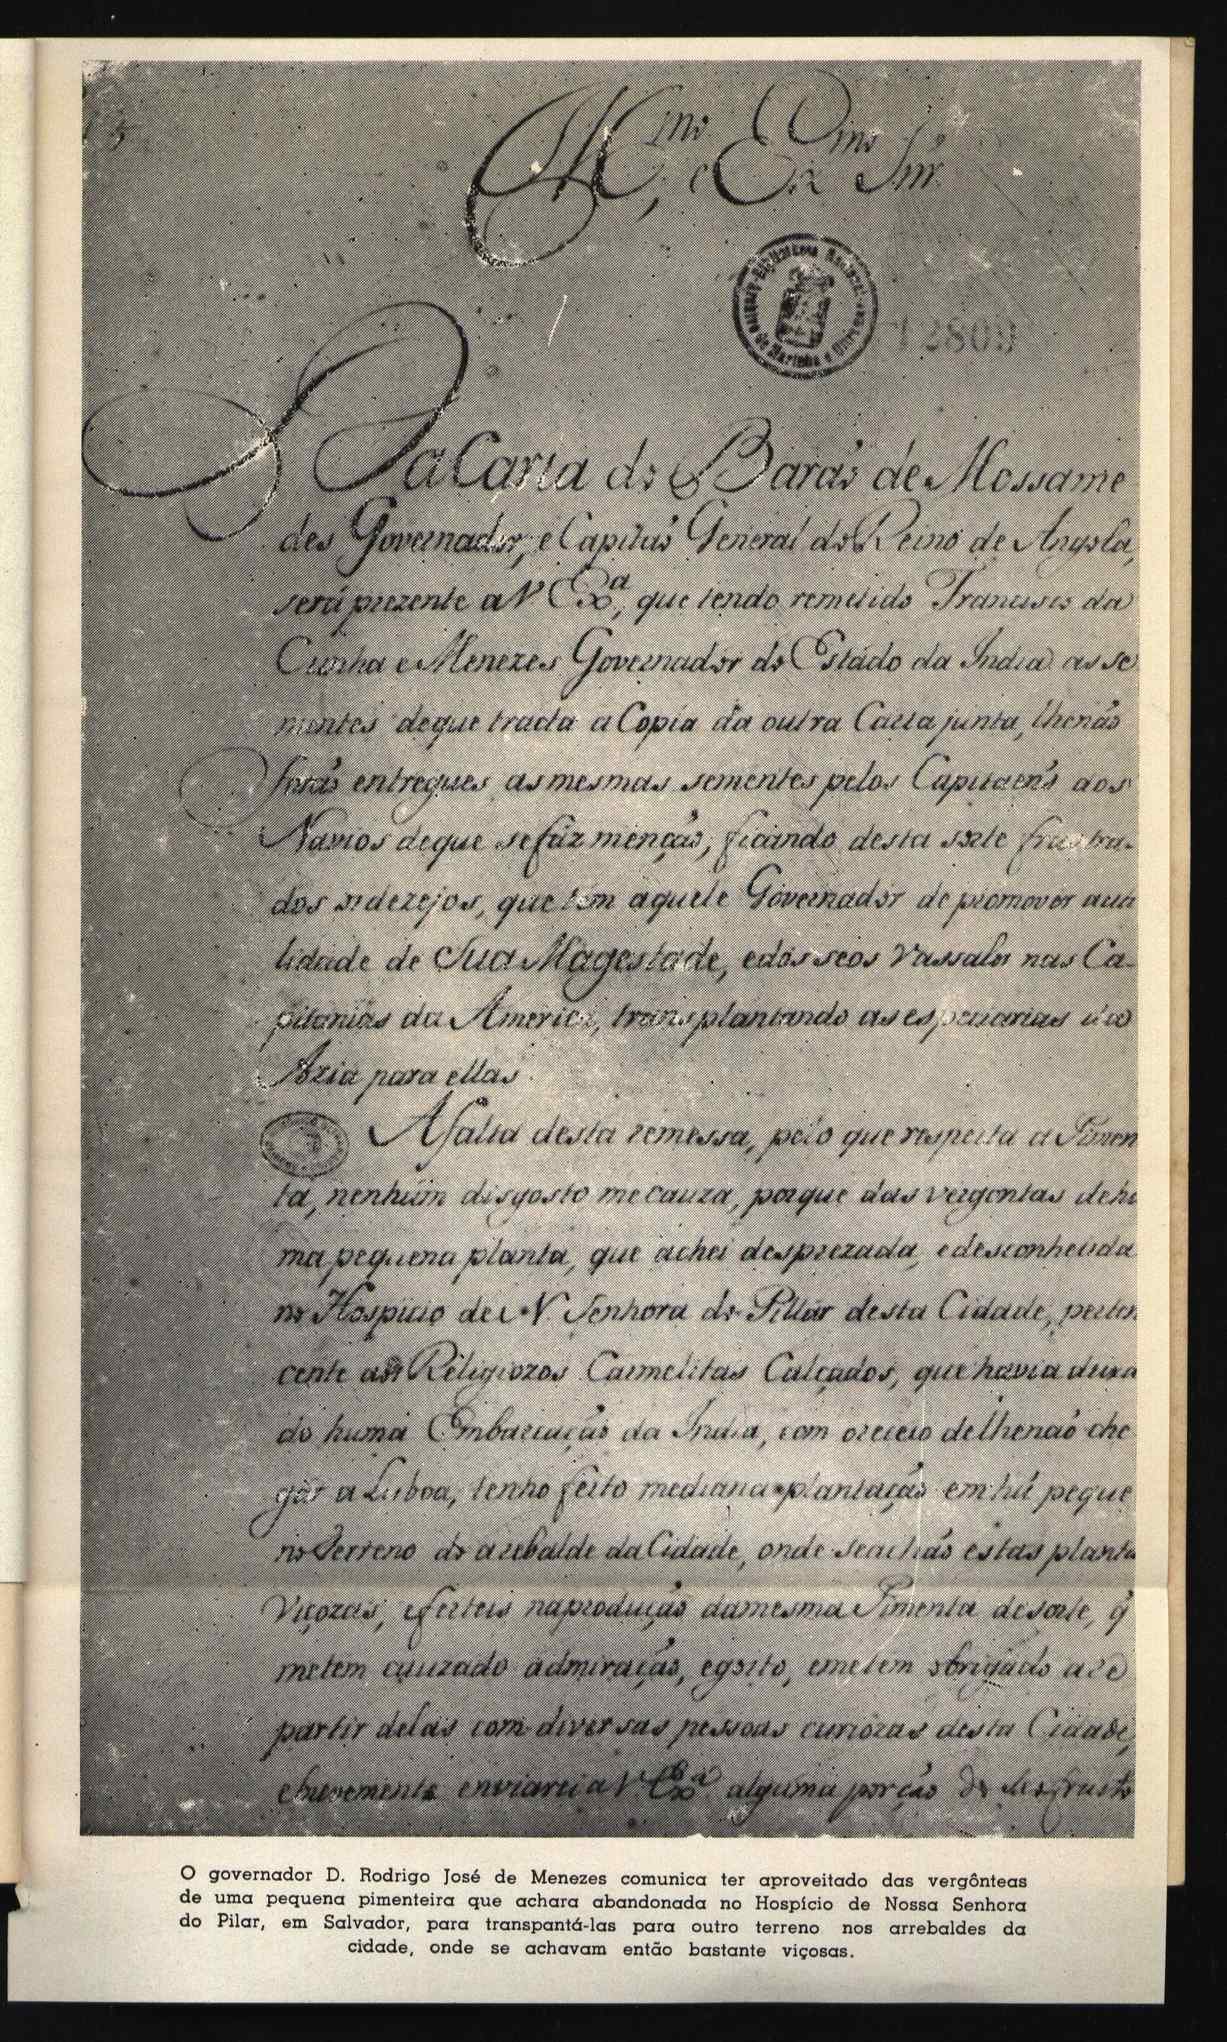 Ill.mo e Ex.mo Snr.
Bibliotheca Nacional
de Marinha e Ultramar
12809
Da Carta do Baraõ de Mossame
des Governador, e Capitaõ General do Reino de Angola,
será prezente a V. Ex.a, que tendo remetido Francisco da
Cunha e Menezes Governador do Estádo da India as se
mentes deque tracta a Copia da outra Carta junta, lhenaõ
foraõ entregues as mesmas sementes pelos Capitaens dos
Navios deque sefáz mençaõ, ficando desta sorte frustra-
dos os dezejos, que tem aquele Governador de promover auti
lidade de Sua Magestade, edos seos Vassalos nas Ca-
pitanias da America, transplantando as especiarias da
Azia para ellas.
A falta desta remessa, pelo que respeita a Pimen
ta, nenhum disgosto me cauza, porque das vergontas dehu
ma pequena planta, que achei desprezada, edesconhecida
no Hospicio de N. Senhora do Pillar desta Cidade, perten
cente aos Religiozos Carmelitas Calçados, que havia deixa
do huma Embarcaçaõ da India, com oreceio delhenaõ che
gar a Lisboa, tenho feito mediana plantaçaõ em hũ peque
no Terreno do arebalde da Cidade, onde seachaõ estas planta
Viçozas, eferteis naproduçaõ damesma Pimenta desorte, q̃
metem cauzado admiraçaõ, egosto, emetem obrigado a re
partir delas com diversas pessoas curiozas desta Cidade,
ebrevemente enviarei a V. Ex.a alguma porçaõ do seo fructo
O governador D. Rodrigo José de Menezes comunica ter aproveitado das vergônteas
de uma pequena pimenteira que achara abandonada no Hospício de Nossa Senhora
do Pilar, em Salvador, para transpantá-las para outro terreno nos arrebaldes da
cidade, onde se achavam então bastante viçosas.